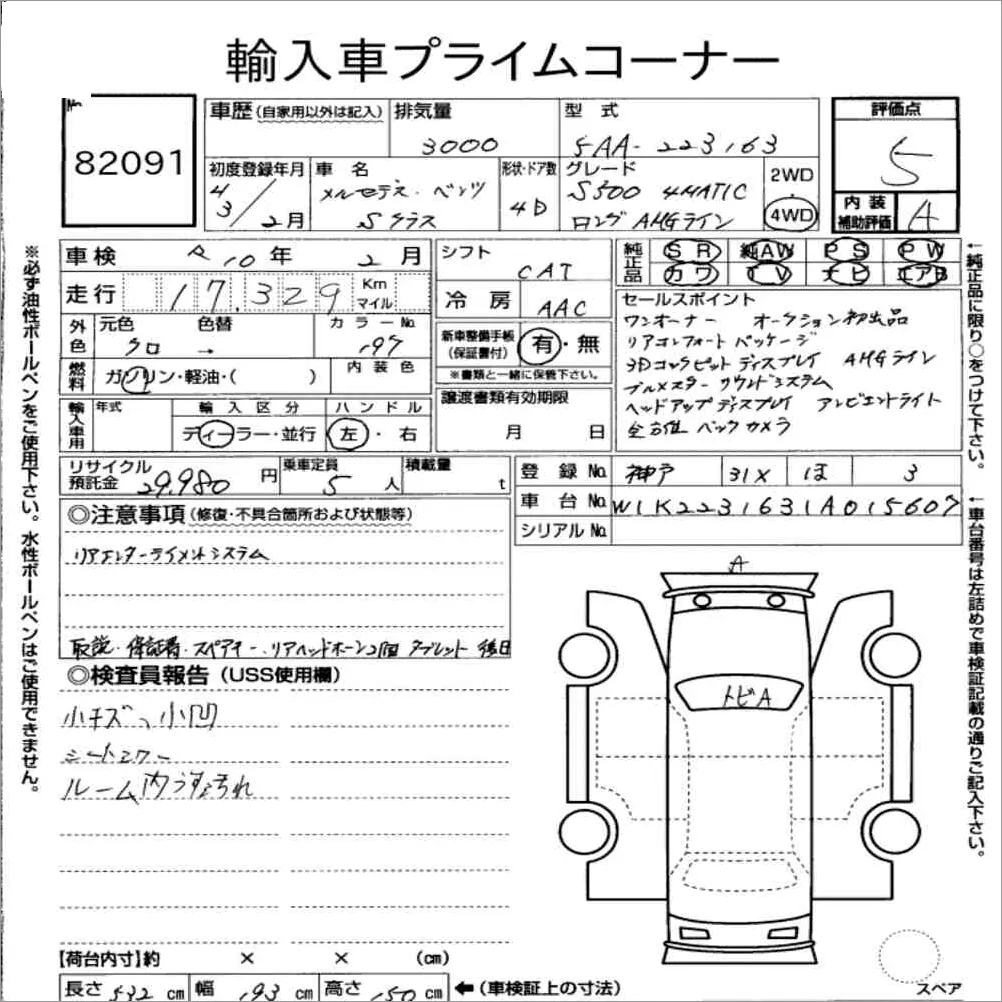 輸入車プライムコーナー
82091
車歴 (自家用以外は記入)
排気量
3000
型式
5AA-223163
評価点
5
初度登録年月
4/3/2月
車名
メルセデス・ベンツ
Sクラス
形状・ドア数
4D
グレード
S500 4MATIC
ロング AMGライン
2WD
・
4WD
内装
補助評価
A
車検 R10年 2月
走行 17,329 Km マイル
シフト
CAT
冷房
AAC
純正品
SR 純AW PS PW
カワ TV ナビ エアB
外色
元色 色替
クロ →
カラーNo.
197
燃料
ガソリン・軽油・( )
内装色
新車整備手帳
(保証書付)
有・無
※書類と一緒に保管下さい。
セールスポイント
ワンオーナー オークション初出品
リアコンフォートパッケージ
3Dコックピットディスプレイ AMGライン
ブルメスターサウンドシステム
ヘッドアップディスプレイ アンビエントライト
全方位 バックカメラ
輸入車用
年式
輸入区分
ディーラー・並行
ハンドル
左・右
譲渡書類有効期限
月 日
リサイクル
預託金 29,980円
乗車定員
5人
積載量
t
登録No. 神戸 31X ほ 3
車台No. W1K2231631A015607
シリアルNo.
◎注意事項 (修復・不具合箇所および状態等)
リアエンターテイメントシステム
取説・保証書・スペアキー・リアヘッドホーン2個 タブレット 後日
◎検査員報告 (USS使用欄)
小キズ、小凹
シートシワ
ルーム内うすい汚れ
A
トビA
【荷台内寸】約 × × (cm)
長さ 532 cm 幅 193 cm 高さ 150 cm ←(車検証上の寸法)
スペア
※必ず油性ボールペンをご使用下さい。水性ボールペンはご使用できません。
←純正品に限り○をつけて下さい。
←車台番号は左詰めで車検証記載の通りご記入下さい。